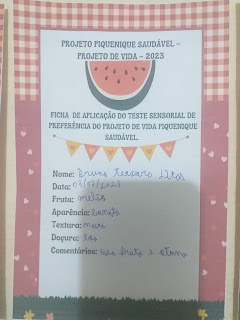 PROJETO PIQUENIQUE SAUDÁVEL –
PROJETO DE VIDA – 2023
FICHA DE APLICAÇÃO DO TESTE SENSORIAL DE
PREFERÊNCIA DO PROJETO DE VIDA PIQUENIQUE
SAUDÁVEL.
Nome: Bruna
Data: 03/07/2023
Fruta: melão
Aparência: bonita
Textura:
Doçura: boa
Comentários: fruta é